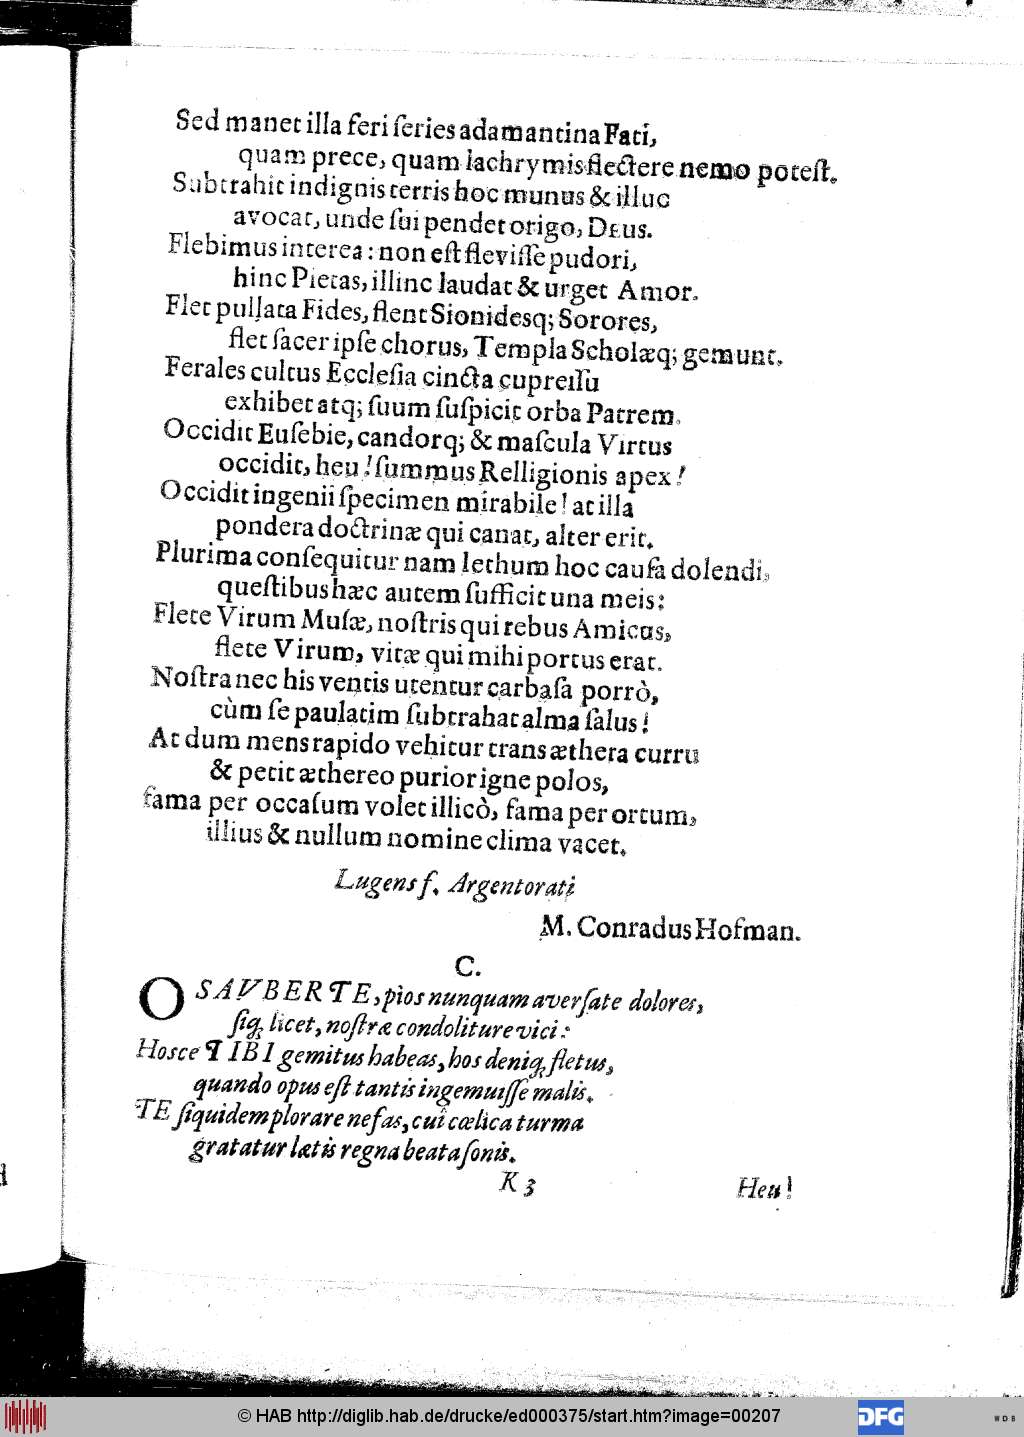 Sed manet illa feri ſeries adamantina Fati,
quam prece, quam lachrymis flectere nemo poteſt.
Subtrahit indignis terris hoc munus & illuc
avocat, unde ſui pendet origo, Deus.
Flebimus interea: non eſt fleviſſe pudori,
hinc Pietas, illinc laudat & urget Amor.
Flet pullata Fides, flent Sionidesq; Sorores,
flet ſacer ipſe chorus, Templa Scholæq; gemunt.
Ferales cultus Eccleſia cincta cupreſſu
exhibet atq; ſuum ſuſpicit orba Patrem.
Occidit Euſebie, candorq; & maſcula Virtus
occidit, heu! ſummus Relligionis apex!
Occidit ingenii ſpecimen mirabile! at illa
pondera doctrinæ qui canat, alter erit.
Plurima conſequitur nam lethum hoc cauſa dolendi,
queſtibus hæc autem ſufficit una meis:
Flete Virum Muſæ, noſtris qui rebus Amicus,
flete Virum, vitæ qui mihi portus erat.
Noſtra nec his ventis utentur carbaſa porrò,
cùm ſe paulatim ſubtrahat alma ſalus!
At dum mens rapido vehitur trans æthera curru
& petit æthereo purior igne polos,
fama per occaſum volet illicò, fama per ortum,
illius & nullum nomine clima vacet.
Lugens f. Argentorati
M. Conradus Hofman.
C.
O SAVBERTE, pios nunquam averſate dolores,
ſiq; licet, noſtræ condoliture vici:
Hosce TIBI gemitus habeas, hos deniq; fletus,
quando opus eſt tantis ingemuiſſe malis.
TE ſiquidem plorare nefas, cui cœlica turma
gratatur lætis regna beata ſonis.
K 3
Heu!
© HAB http://diglib.hab.de/drucke/ed000375/start.htm?image=00207
DFG
WDB